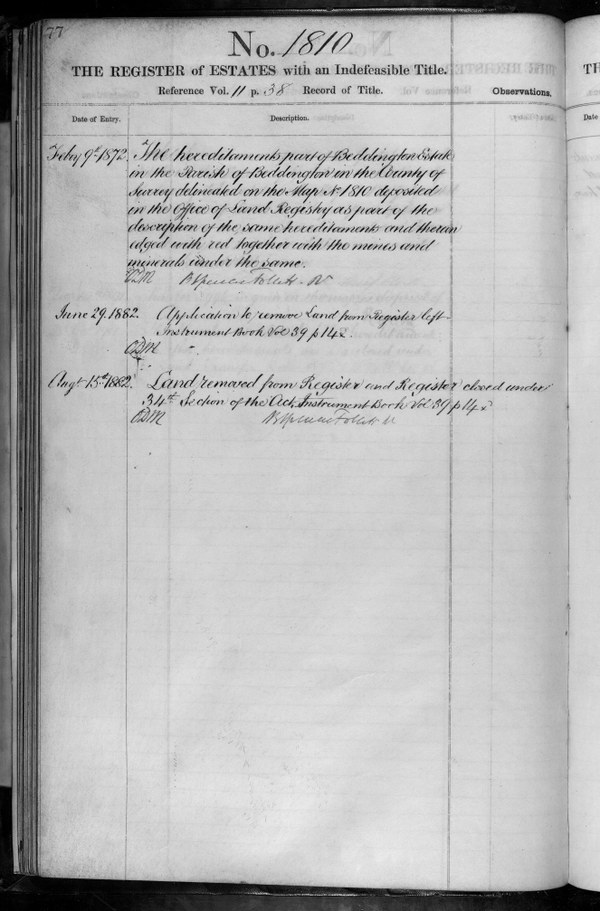 77
No. 1810
THE REGISTER of ESTATES with an Indefeasible Title.
Reference Vol. 11 p. 38 Record of Title.
Observations.
Date of Entry.
Description.
Feby 9th 1872. The hereditaments part of Beddington Estate
in the Parish of Beddington in the County of
Surrey delineated on the Map No 1810 deposited
in the Office of Land Registry as part of the
description of the same hereditaments and therein
edged with red together with the mines and
minerals under the same.
Spencer Follett
June 29. 1882. Application to remove Land from Register left
Instrument Book Vol 39 p 142.
Augt 15th 1882. Land removed from Register and Register closed under
34th Section of the Act. Instrument Book Vol. 39 p 142
Spencer Follett
TH
Date